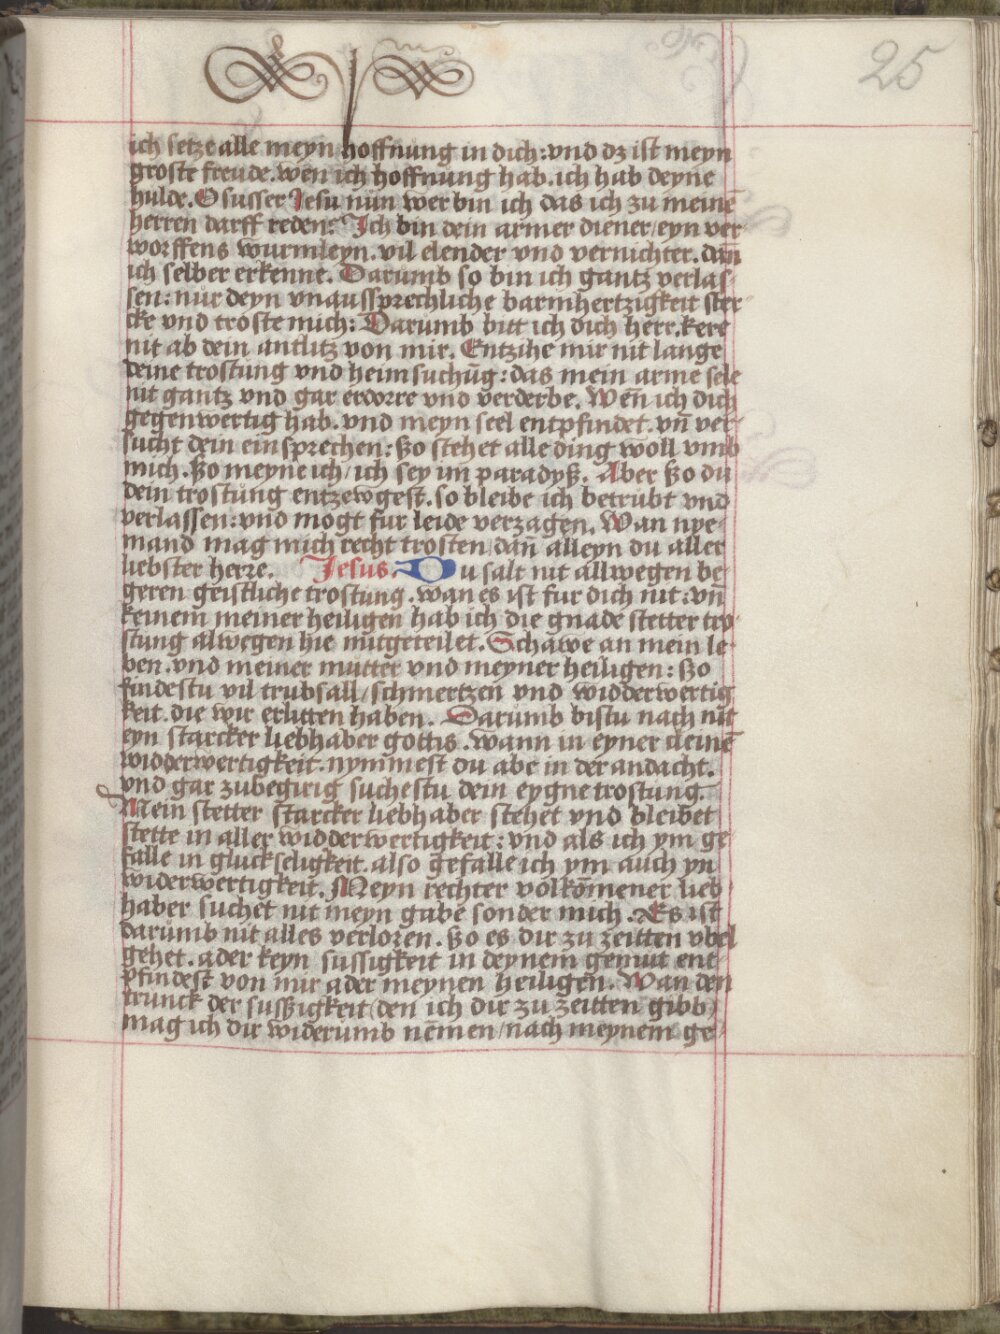 25
ich setze alle meyn hoffnung in dich: vnd dz ist meyn
groste freude. wen̄ ich hoffnung hab. ich hab deyne
hulde. O susser Jesu nun wer bin ich das ich zu meinē
herren darff reden: Ich bin dein armer diener/ eyn ver
worffens wurmleyn. vil elender vnd vernichter. dan̄
ich selber erkenne. Darumb so bin ich gantz verlas
sen: nur deyn vnaussprechliche barmhertzigkeit ster
cke vnd troste mich: Darumb bitt ich dich herr. kere
nit ab dein antlitz von mir. Entzihe mir nit lange
deine trostung vnd heimsuchūg: das mein arme sele
nit gantz vnd gar erdorre vnd verderbe. Wen̄ ich dich
gegenwertig hab. vnd meyn seel entpfindet. vn̄ ver
sucht dein einsprechen: ßo stehet alle ding woll vmb
mich. ßo meyne ich/ ich sey im paradyß. Aber ßo du
dein trostung entzewgest. so bleibe ich betrubt vnd
verlassen: vnd mogt fur leide verzagen. Wan nye
mand mag mich recht trosten/ dan̄ alleyn du aller
liebster herre. Jesus. Du salt nit allwegen be
geren geistliche trostung. wan es ist fur dich nit: vn̄
keinem meiner heiligen hab ich die gnade stetter tro
stung alwegen hie mitgeteilet. Schawe an mein le
ben. vnd meiner mutter vnd meyner heiligen: ßo
findestu vil trubsall/ schmertzen vnd widderwertig
keit. die wir erlitten haben. Darumb bistu nach nit
eyn starcker liebhaber gottis. wann in eyner cleinē
widderwertigkeit. nymmest du abe in der andacht.
vnd gar zubegirig suchestu dein eygne trostung.
Mein stetter starcker liebhaber stehet vnd bleibet
stette in aller widderwertigkeit: vnd als ich ym ge
falle in gluckseligkeit. also gefalle ich ym auch yn
widerwertigkeit. Meyn rechter volkōmener lieb
haber suchet nit meyn gabe sonder mich. Es ist
darumb nit alles verloren. ßo es dir zu zeitten vbel
gehet. ader keyn sussigkeit in deynem gemut ent
pfindest von mir ader meynen heiligen. Wan den
trunck der sussigkeit/ den ich dir zu zeitten gibb/
mag ich dir widerumb nēmen/ nach meynem ge